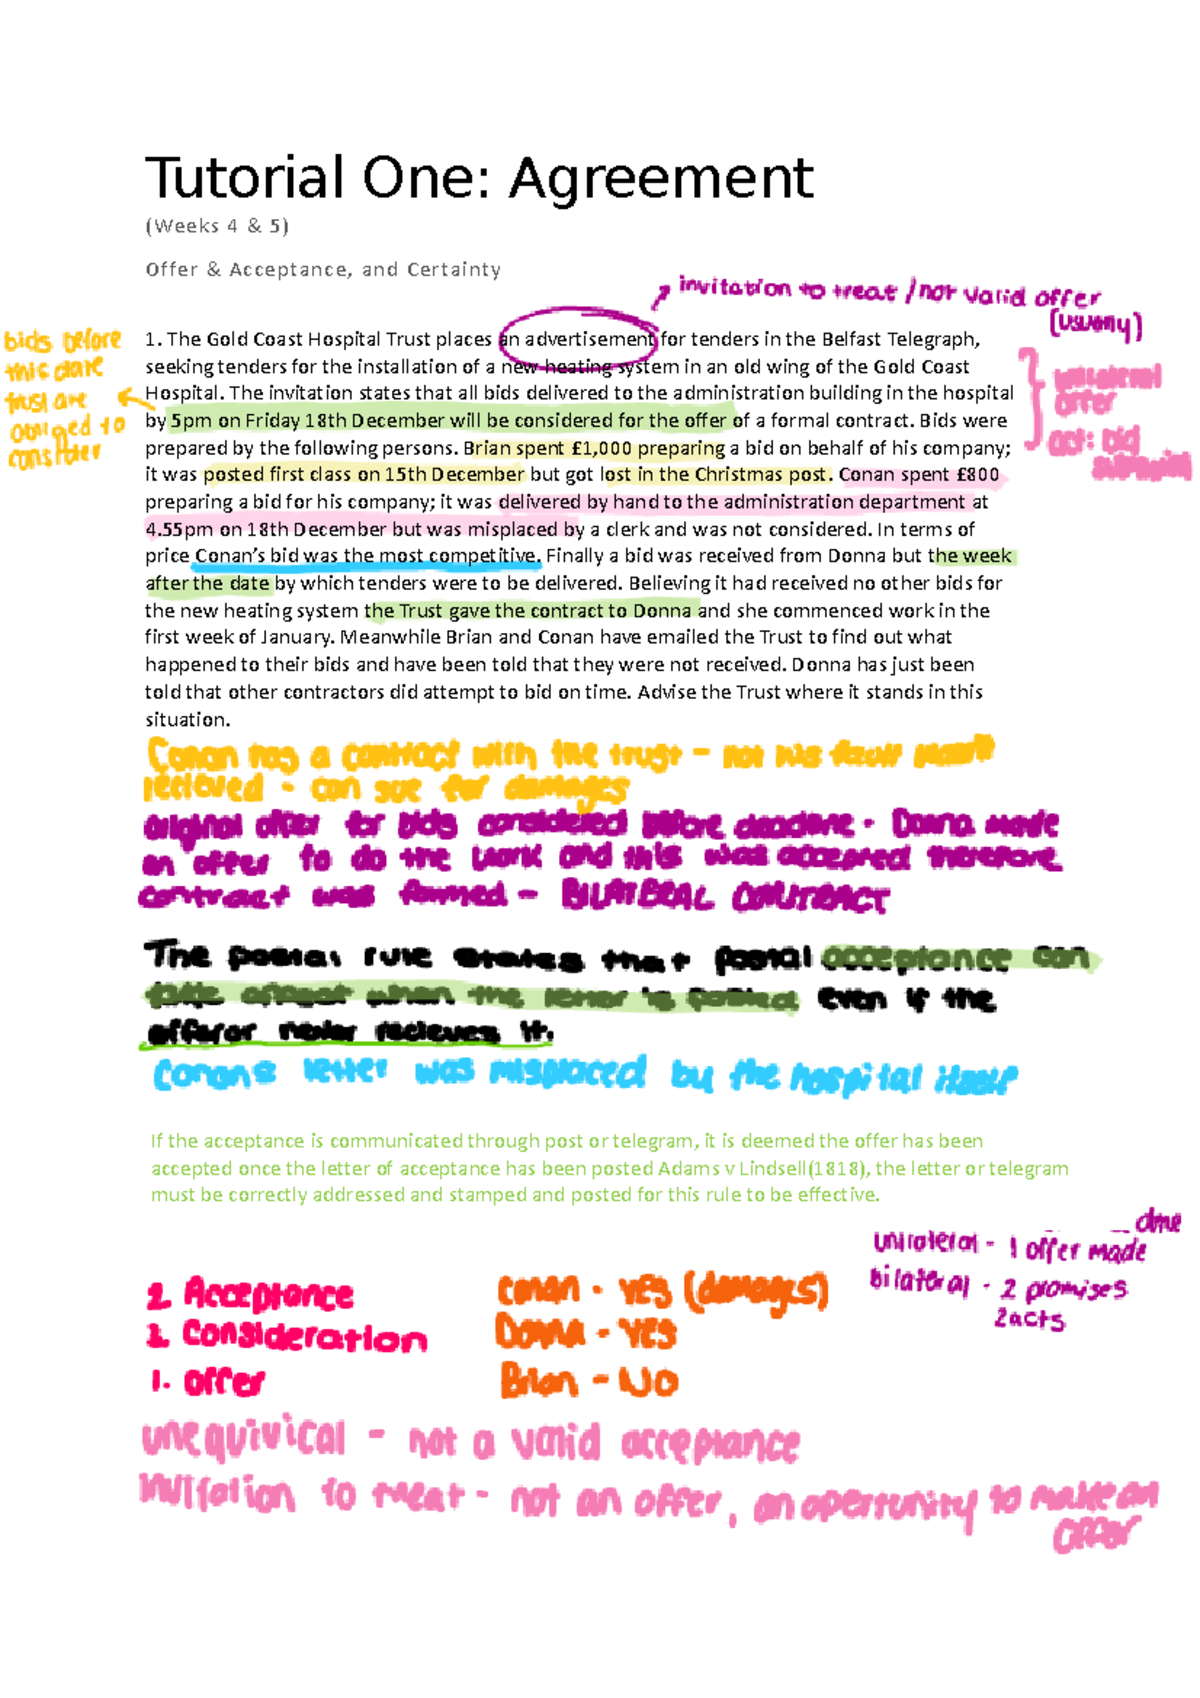 Tutorial One: Agreement
(Weeks 4 & 5)
Offer & Acceptance, and Certainty
invitation to treat / not valid offer
(usually)
bids before
this date
trust are
obliged to
consider
1. The Gold Coast Hospital Trust places an advertisement for tenders in the Belfast Telegraph,
seeking tenders for the installation of a new heating system in an old wing of the Gold Coast
Hospital. The invitation states that all bids delivered to the administration building in the hospital
by 5pm on Friday 18th December will be considered for the offer of a formal contract. Bids were
prepared by the following persons. Brian spent £1,000 preparing a bid on behalf of his company;
it was posted first class on 15th December but got lost in the Christmas post. Conan spent £800
preparing a bid for his company; it was delivered by hand to the administration department at
4.55pm on 18th December but was misplaced by a clerk and was not considered. In terms of
price Conan's bid was the most competitive. Finally a bid was received from Donna but the week
after the date by which tenders were to be delivered. Believing it had received no other bids for
the new heating system the Trust gave the contract to Donna and she commenced work in the
first week of January. Meanwhile Brian and Conan have emailed the Trust to find out what
happened to their bids and have been told that they were not received. Donna has just been
told that other contractors did attempt to bid on time. Advise the Trust where it stands in this
situation.
unilateral
offer
act: bid
Conan has a contract with the trust - not his fault
recieved - can sue for damages
original offer for bids considered before deadline. Donna made
an offer to do the work and this was accepted therefore
contract was formed - BILATERAL CONTRACT
The postal rule states that postal acceptance can
take effect when the letter is posted even if the
offeror never recieves it.
Conans letter was misplaced by the hospital itself
If the acceptance is communicated through post or telegram, it is deemed the offer has been
accepted once the letter of acceptance has been posted Adams v Lindsell(1818), the letter or telegram
must be correctly addressed and stamped and posted for this rule to be effective.
unilateral - 1 offer made
bilateral - 2 promises
2acts
2. Acceptance
Consideration
1. offer
Conan - YES (damages)
Donna - YES
Brian - NO
unequivical - not a valid acceptance
invitation to treat - not an offer, an opertunity to make an
offer